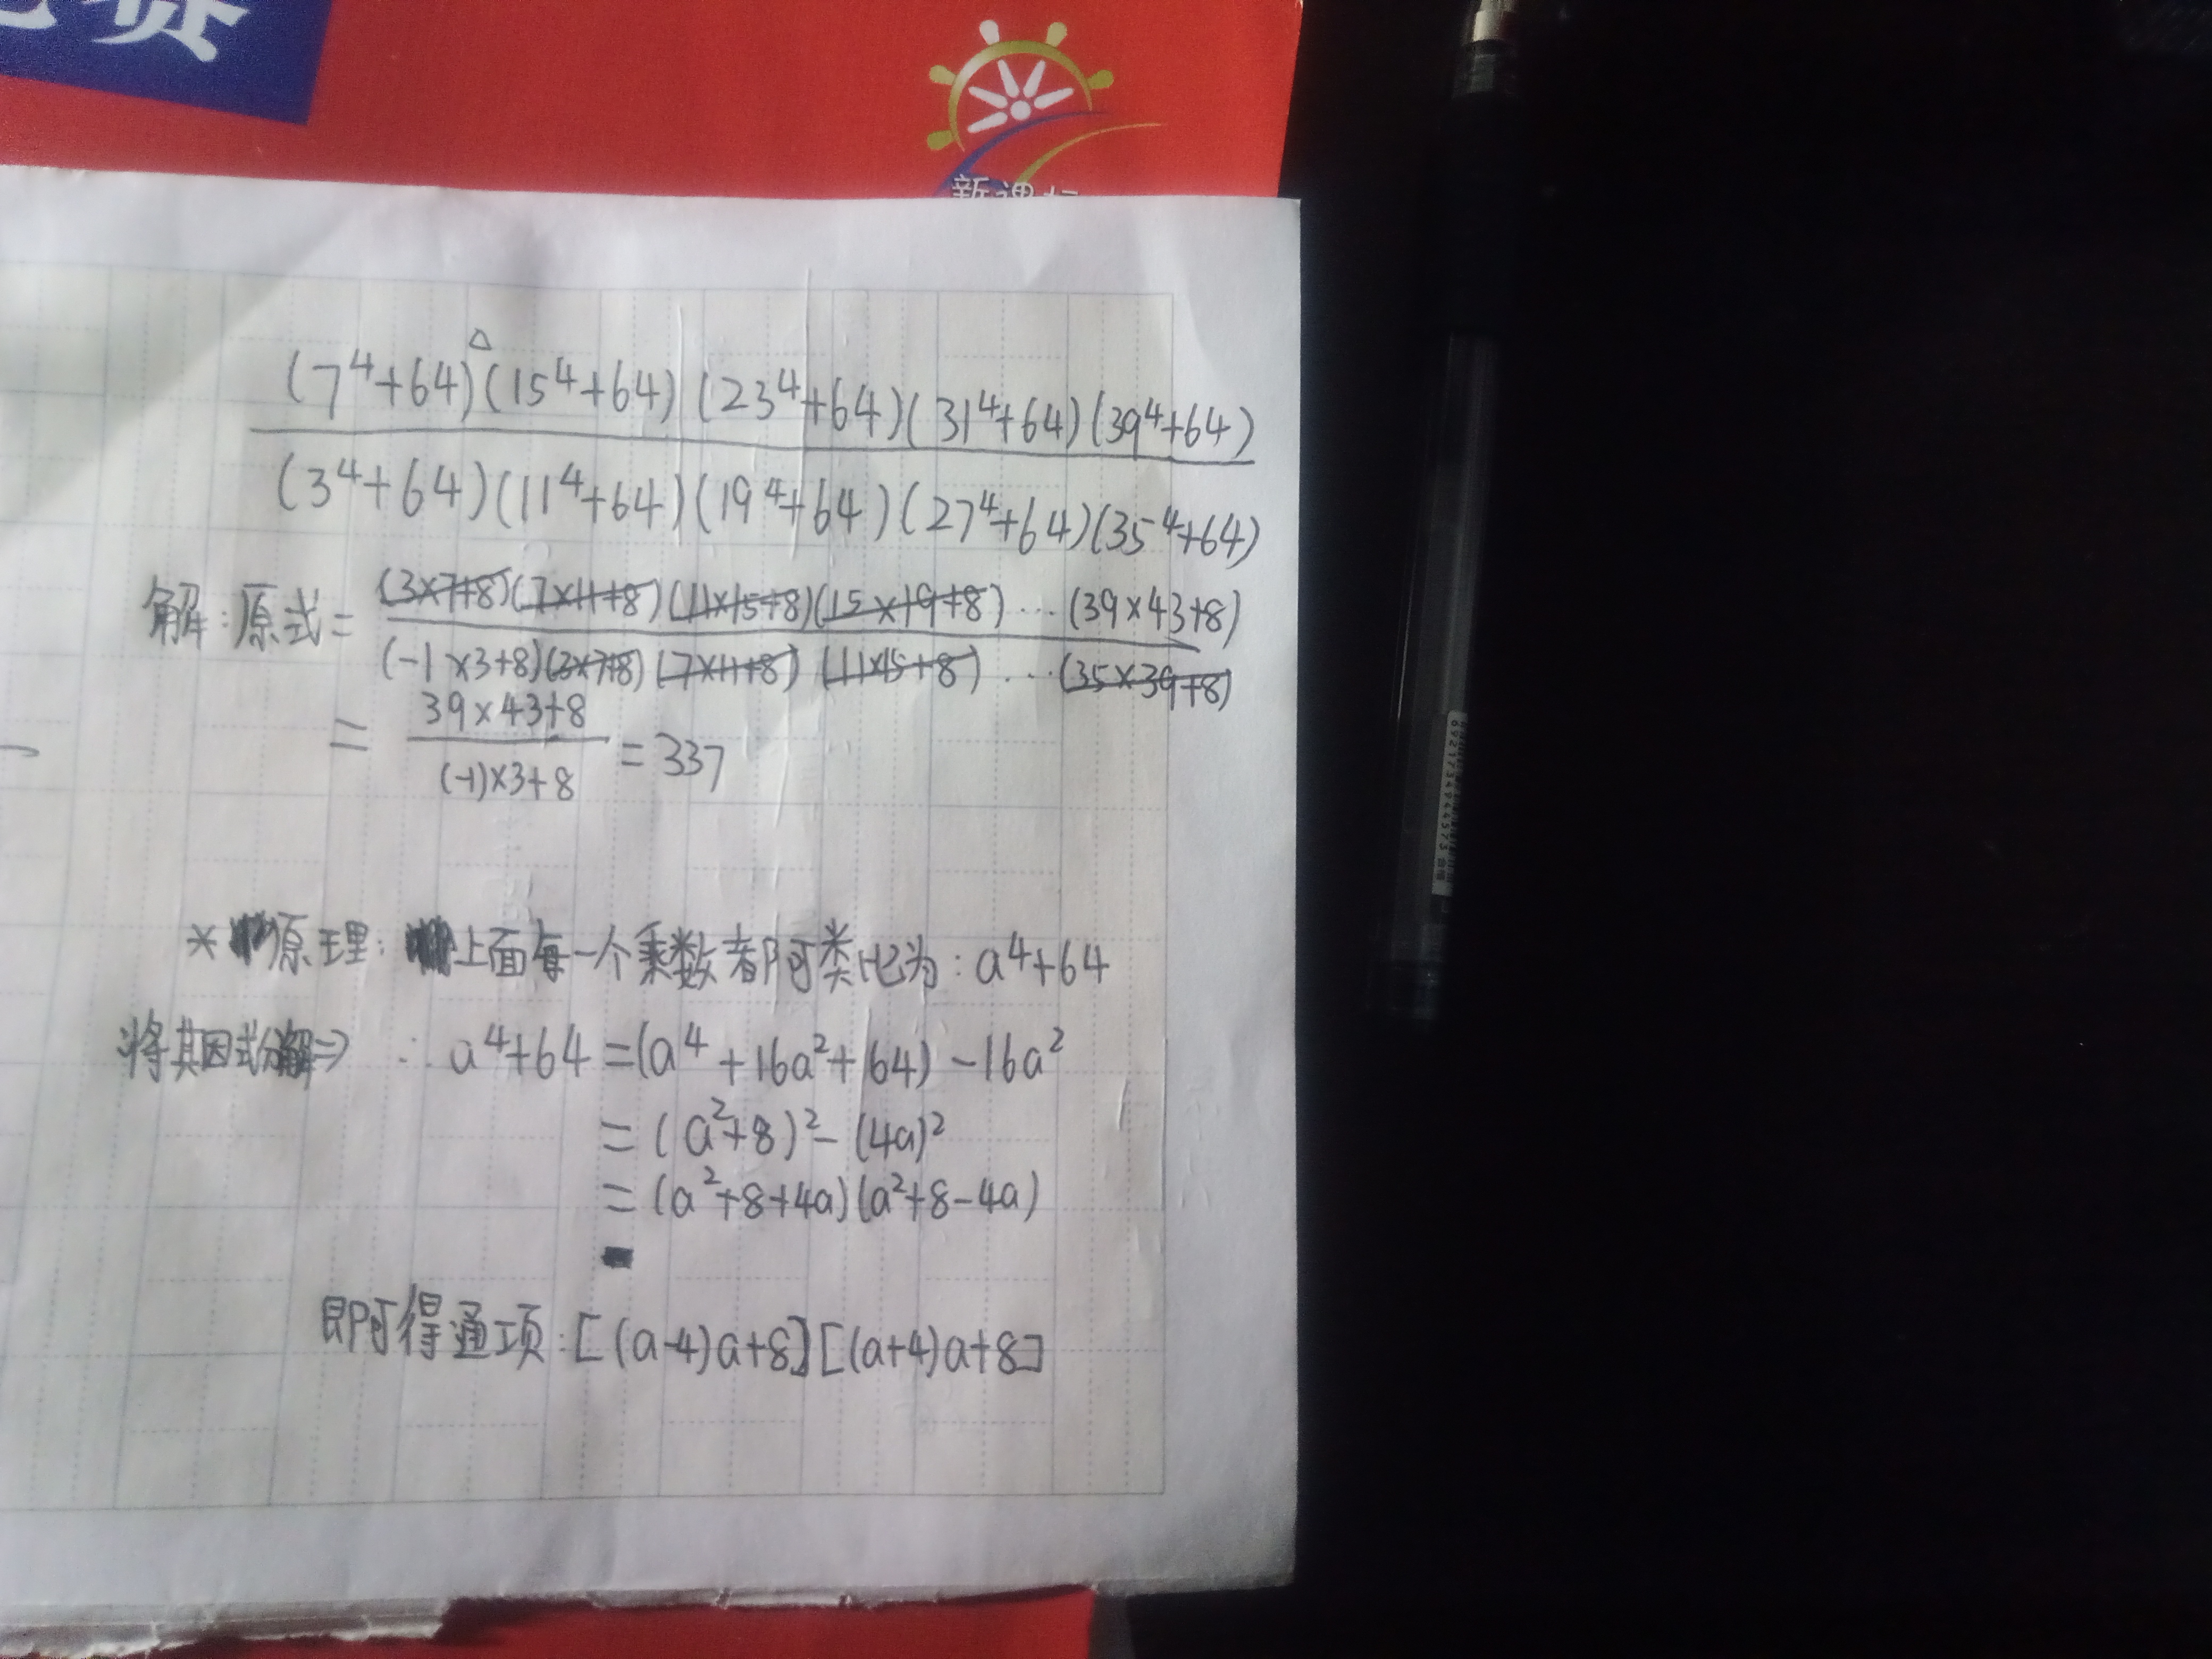 赛
新课标
(7⁴+64)(15⁴+64)(23⁴+64)(31⁴+64)(39⁴+64)
(3⁴+64)(11⁴+64)(19⁴+64)(27⁴+64)(35⁴+64)
解:原式= (3×7+8)(7×11+8)(11×15+8)(15×19+8)…(39×43+8)
(-1×3+8)(3×7+8)(7×11+8)(11×15+8)…(35×39+8)
= 39×43+8
(-1)×3+8
=337
*原理: 上面每一个乘数都可类比为: a⁴+64
将其因式分解⇒ ∴ a⁴+64=(a⁴+16a²+64)-16a²
=(a²+8)²-(4a)²
=(a²+8+4a)(a²+8-4a)
即可得通项:[(a-4)a+8][(a+4)a+8]